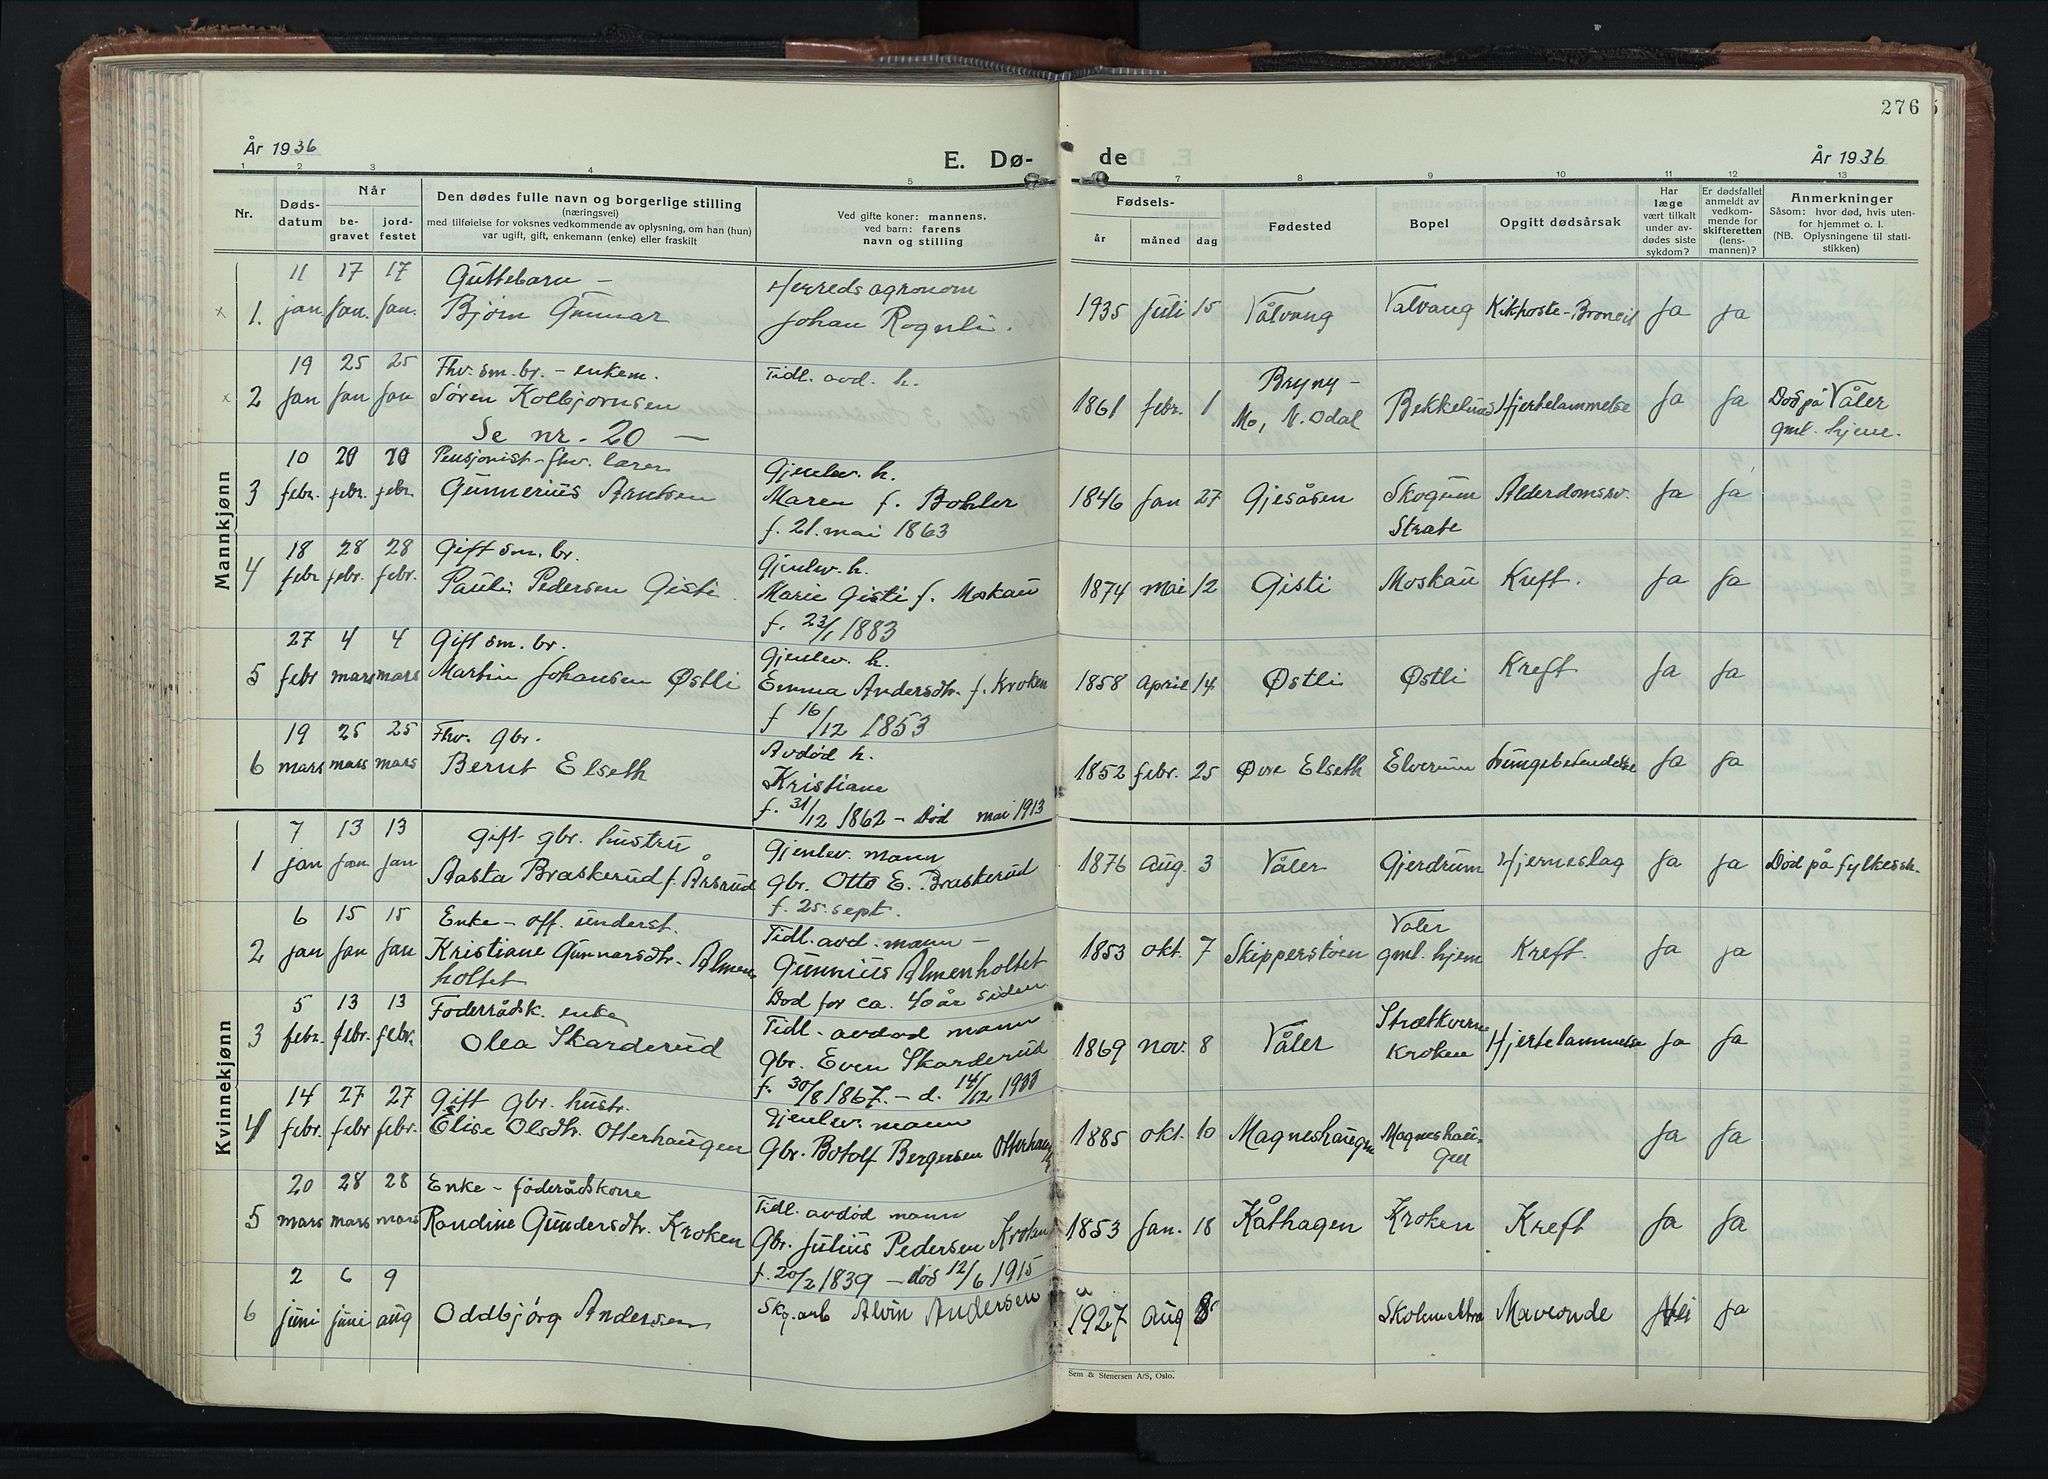 276
År 1936
E. Dø-
de
År 1936
1 2 3 4 5 7 8 9 10 11 12 13
Nr.
Døds-
datum
Når
be-
gravet
jord-
festet
Den dødes fulle navn og borgerlige stilling
(næringsvei)
med tilføielse for voksnes vedkommende av oplysning, om han (hun)
var ugift, gift, enkemann (enke) eller fraskilt
Ved gifte koner: mannens,
ved barn: farens
navn og stilling
Fødsels-
år måned dag
Fødested
Bopel
Opgitt dødsårsak
Har
læge
vært tilkalt
under av-
dødes siste
sykdom?
Er dødsfallet
anmeldt av
vedkom-
mende for
skifteretten
(lens-
mannen)?
Anmerkninger
Såsom: hvor død, hvis uten-
for hjemmet o. l.
(NB. Oplysningene til stati-
stikken)
Mannkjønn
11 17 17 Guttebarn - Herredsagronom
x 1. jan jan. jan. Bjørn Gunnar Johan Rognli. 1935 juli 15 Vålvang Valvang Kikhoste - Ja Ja
19 25 25 Fhv. sm. br. - enkem. Tidl. avd. h. Bryny -
x 2 jan jan jan Søren Kolbjørnsen 1861 febr. 1 Mo, N. Odal Hjertelammelse Ja Ja Død på Våler
Se nr. 20 - gml. hjem.
10 20 20 Pensjonist - fhv. lærer Gjenlev. h.
3 febr. febr. febr. Gunnerius Arntsen Maren f. Bohler 1846 Jan 27 Gjesåsen Skogum Alderdomssv. Ja Ja
f. 21. mai 1863 Strate
18 28 28 Gift sm. br. Gjenlev. h.
4 febr febr. febr. Pauli Pedersen Gisti. Marie Gisti f. Moskau 1874 mai 12 Gisti Moskau Kreft. Ja Ja
f. 23/1 1883
27 4 4 Gift sm. br. Gjenlev. h.
5 febr mars mars Martin Johansen Østli Emma Andersdtr. f. Kroken 1858 april 14 Østli Østli Kreft Ja Ja
f 16/12 1853
19 25 25 Fhv. gbr. Avdød h.
6 mars mars mars Bernt Elseth Kristiane 1852 febr. 25 Øvre Elseth Elverum Lungebetendelse Ja Ja
f. 31/12 1862 - Død mai 1913
Kvinnekjønn
7 13 13 Gift gbr. hustru Gjenlev. mann
1 jan jan jan Aasta Braskerud f. Årsrud gbr. Otto E. Braskerud 1876 Aug. 3 Våler Gjerdrum Hjerneslag Ja Ja Død på fylkessk.
f. 25. sept.
6 15 15 Enke - off. underst. Tidl. avd. mann - Valer
2 jan jan jan Kristiane Gunnarsdtr. Almen Gunnius Almenholtet 1853 okt. 7 Skipperstøen gml. hjem Kreft. Ja ja
holtet Død for ca. 40 år siden.
5 13 13 Føderrådsk. enke Tidl. avdød mann
3 febr. febr. febr. Olea Skarderud gbr. Even Skarderud 1869 nov. 8 Våler Kroken Hjertelammelse Ja Ja
f. 30/8 1867. - d. 14/12
14 27 27 Gift gbr. hustr. Gjenlev. mann
4 febr. febr febr. Elise Olsdtr. Otterhaugen Gbr. Botolf Bergersen 1885 okt. 10 Magneshaugen Magneshau- Ja Ja
gen
20 28 28 Enke - føderådskone Tidl. avdød mann
5 mars mars mars Randine Gundersdtr. Kroken Gbr. Julius Pedersen Kroken 1853 Jan. 18 Kåthagen Kroken Kreft Ja Ja
f. 20/2 1839 - død 12/6 1915
2 6 9
6 juni juni aug Oddbjørg Andersen Skg. arb Alvin Andersen 1927 Aug Ja
Sem & Stenersen A/S, Oslo.